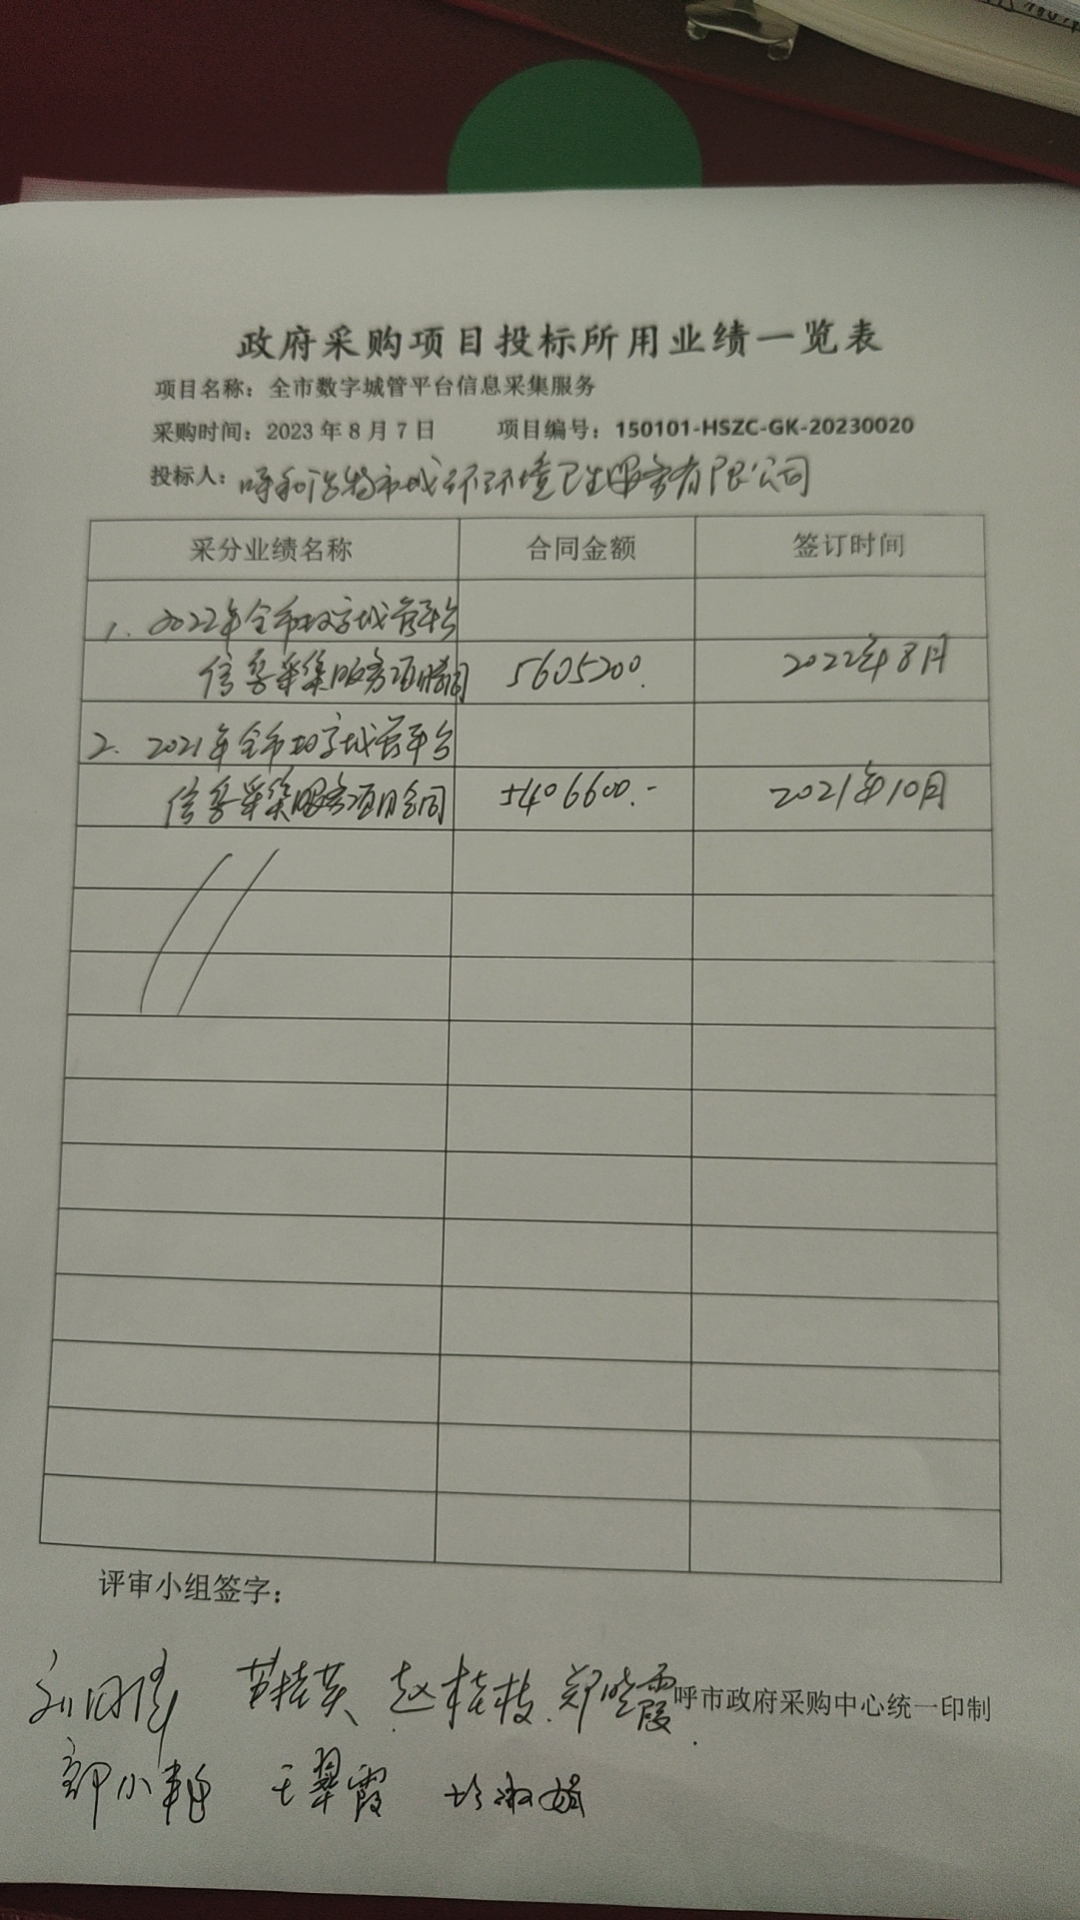 政府采购项目投标所用业绩一览表
项目名称：全市数字城管平台信息采集服务
采购时间：2023年8月7日 项目编号：150101-HSZC-GK-20230020
投标人：呼和浩特市城环环境卫生服务有限公司
采分业绩名称 合同金额 签订时间
1. 2022年全市数字城管平台
信息采集服务项目合同 5605200. 2022年8月
2. 2021年全市数字城管平台
信息采集服务项目合同 5406600.- 2021年10月
评审小组签字：
赵桂枝 郑晓霞 呼市政府采购中心统一印制
王翠霞